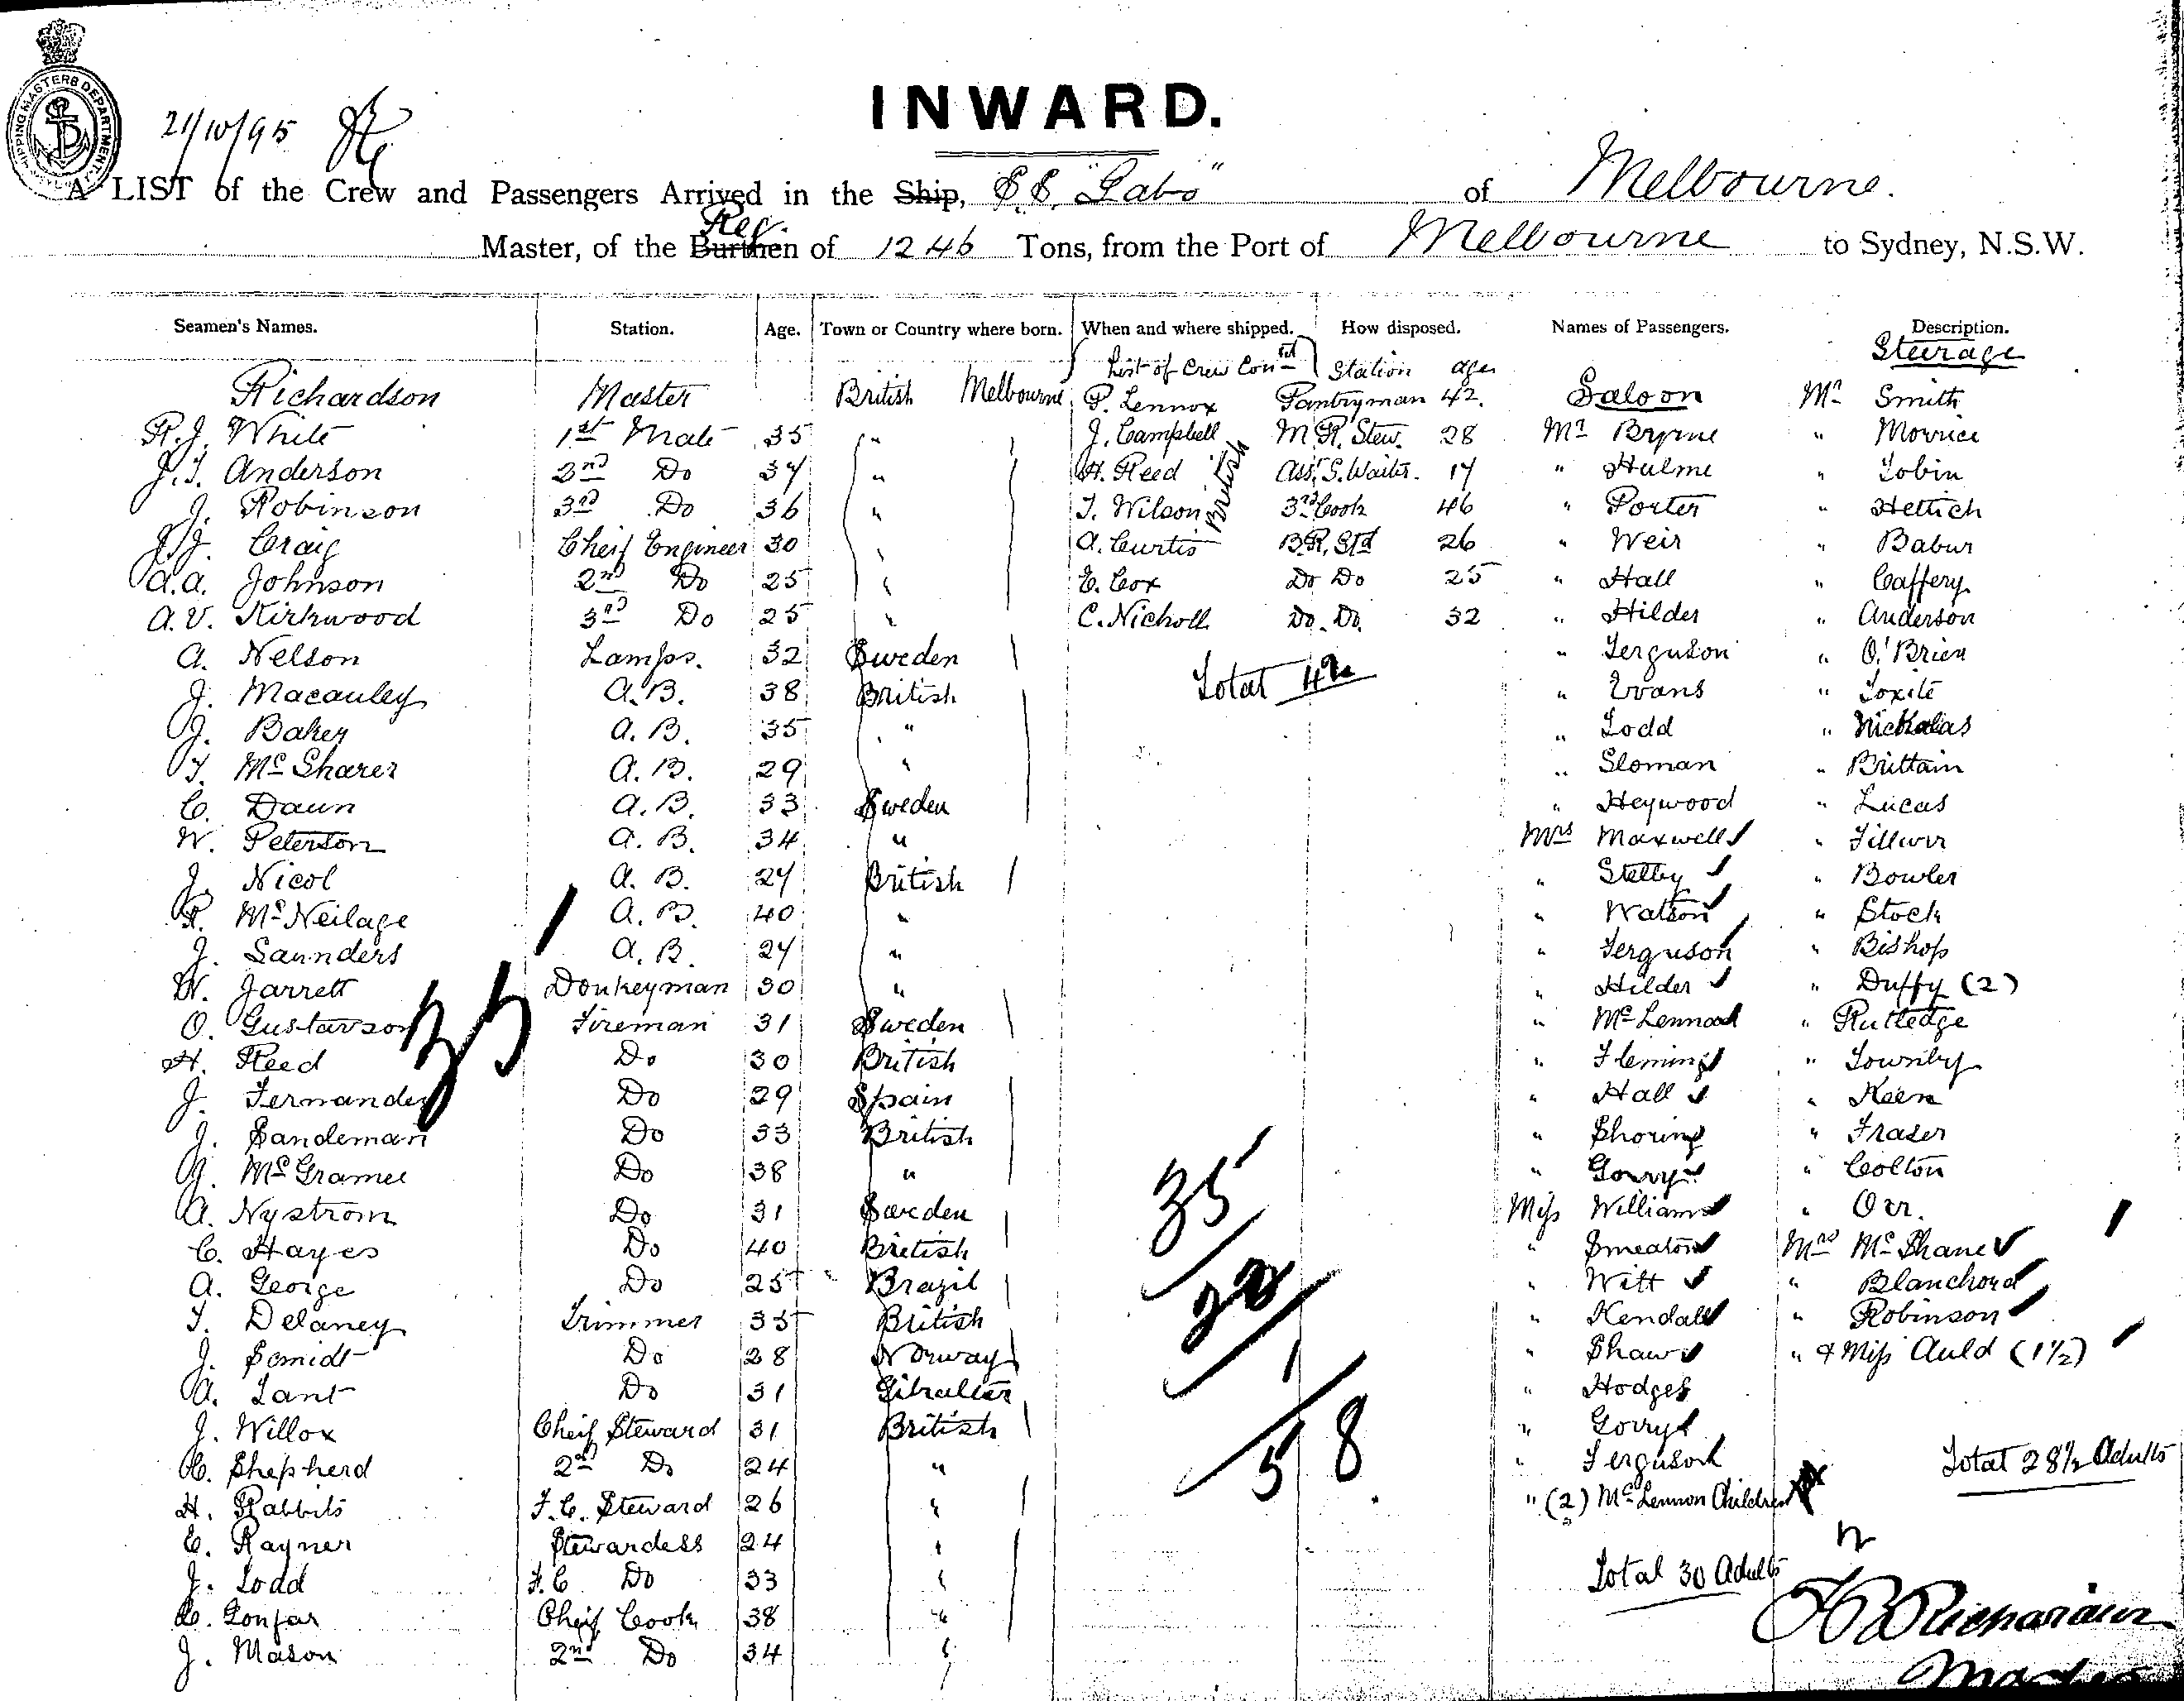 SHIPPING MASTERS DEPARTMENT
21/10/95
INWARD.
A LIST of the Crew and Passengers Arrived in the Ship, S.S. "Gabo" of Melbourne.
Reg.
Master, of the Burthen of 1246 Tons, from the Port of Melbourne to Sydney, N.S.W.
Seamen's Names. Station. Age. Town or Country where born. When and where shipped. How disposed. Names of Passengers. Description.
Richardson Master British Melbourne
R.J. White 1st Mate 35 "
J.T. Anderson 2nd Do 37 "
J. Robinson 3rd Do 36 "
J.J. Craig Cheif Engineer 30 "
A.A. Johnson 2nd Do 25 "
A.V. Kirkwood 3rd Do 25 "
A. Nelson Lamps. 32 Sweden
J. Macauley A.B. 38 British
J. Baker A.B. 35 "
T. McSharer A.B. 29 "
C. Daun A.B. 33 Sweden
W. Peterson A.B. 34 "
J. Nicol A.B. 27 British
R. McNeilage A.B. 40 "
J. Saunders A.B. 27 "
W. Jarrett Donkeyman 30 "
O. Gustavson Fireman 31 Sweden
H. Reed Do 30 British
J. Fernandez Do 29 Spain
J. Sandeman Do 33 British
A. McGramel Do 38 "
A. Nystrom Do 31 Sweden
C. Hayes Do 40 British
A. George Do 25 Brazil
T. Delaney Trimmer 35 British
J. Scmidt Do 28 Norway
A. Lant Do 31 Gibralter
J. Willox Cheif Steward 31 British
C. Shepherd 2nd Do 24 "
H. Rabbits F.C. Steward 26 "
E. Rayner Stewardess 24 "
J. Todd F.C. Do 33 "
Gonsar Cheif Cook 38 "
J. Mason 2nd Do 34 "
List of Crew Contd Station age
P. Lennox Pantryman 42.
J. Campbell M.R. Stew. 28
H. Reed Ass. S. Waiter. 17
T. Wilson 3rd Cook 46
A. Curtis B.R. Std 26
E. Cox Do Do 25
C. Nicholl Do. Do. 32
British
Total 42
35
35
22
1
58
Saloon
Mr Byrne
" Hulme
" Porter
" Weir
" Hall
" Hilder
" Ferguson
" Evans
" Todd
" Sloman
" Heywood
Mrs Maxwell
" Stelby
" Watson
" Ferguson
" Hilder
" McLennan
" Fleming
" Hall
" Shoring
" Gorry
Miss Williams
" Smeaton
" Witt
" Kendall
" Shaw
" Hodges
" Gorry
" Ferguson
" (2) McLennon Children
Total 30 Adults
Steerage
Mr Smith
" Morrice
" Tobin
" Hettich
" Babur
" Caffery
" Anderson
" O'Brien
" Toxite
" Nickolas
" Brittain
" Lucas
" Filliver
" Bowler
" Stock
" Bishop
" Duffy (2)
" Rutledge
" Townley
" Keen
" Fraser
" Colton
" Orr.
Mrs McShane
" Blanchard
" Robinson
" & Miss Auld (1½)
Total 28½ Adults
Richardson
Master